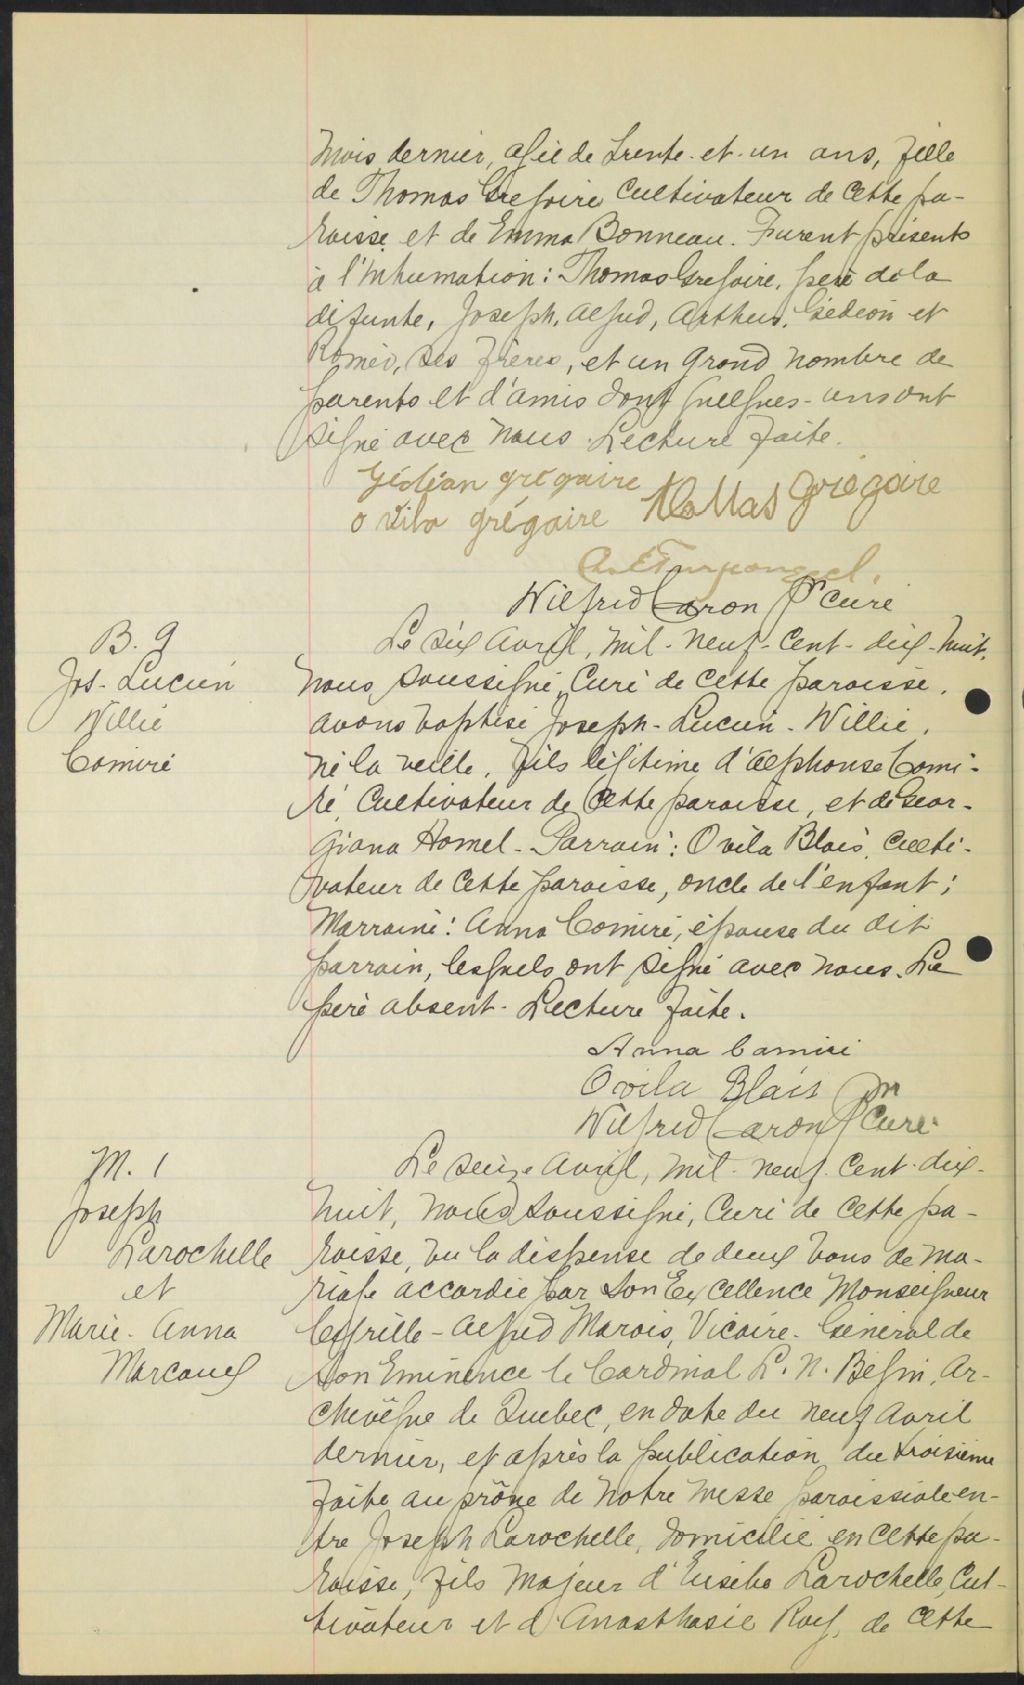 mois dernier, agée de trente-et-un ans, fille
de Thomas Gregoire cultivateur de cette pa-
roisse et de Emma Bonneau. Furent présents
à l'inhumation: Thomas Gregoire, père de la
défunte, Joseph, Alfred, Arthur, Gédéon et
Roméo, ses frères, et un grand nombre de
parents et d'amis dont quelques-uns ont
signé avec nous. Lecture faite.
Gédéan grégaire Thomas Grégoire
Ovila grégaire
Wilfrid Caron Ptre Curé
B. 9
Jos-Lucien
Willie
Comiré
Le six avril, mil-neuf-cent-dix-huit,
nous soussigné, curé de cette paroisse,
avons baptisé Joseph-Lucien-Willie,
né la veille, fils légitime d'Alphonse Comi-
ré, cultivateur de cette paroisse, et de Geor-
giana Hamel. Parrain: Ovila Blais, culti-
vateur de cette paroisse, oncle de l'enfant;
Marraine: Anna Comiré, épouse du dit
parrain, lesquels ont signé avec nous. Le
père absent. Lecture faite.
Anna Camiré
Ovila Blais
Wilfrid Caron Ptre Curé.
M. 1
Joseph
Larochelle
et
Marie-Anna
Marcoux
Le seize avril, mil-neuf-cent-dix-
huit, nous soussigné, Curé de cette pa-
roisse, vu la dispense de deux bans de ma-
riage accordée par Son Excellence Monseigneur
Cyrille-Alfred Marois, Vicaire-Général de
son Eminence le Cardinal L. N. Bégin, Ar-
chevêque de Québec, en date du neuf avril
dernier, et après la publication du troisième
faite au prône de notre messe paroissiale en-
tre Joseph Larochelle, domicilié en cette pa-
roisse, fils majeur d'Eusèbe Larochelle, Cul-
tivateur et d'Anasthasie Roy, de cette